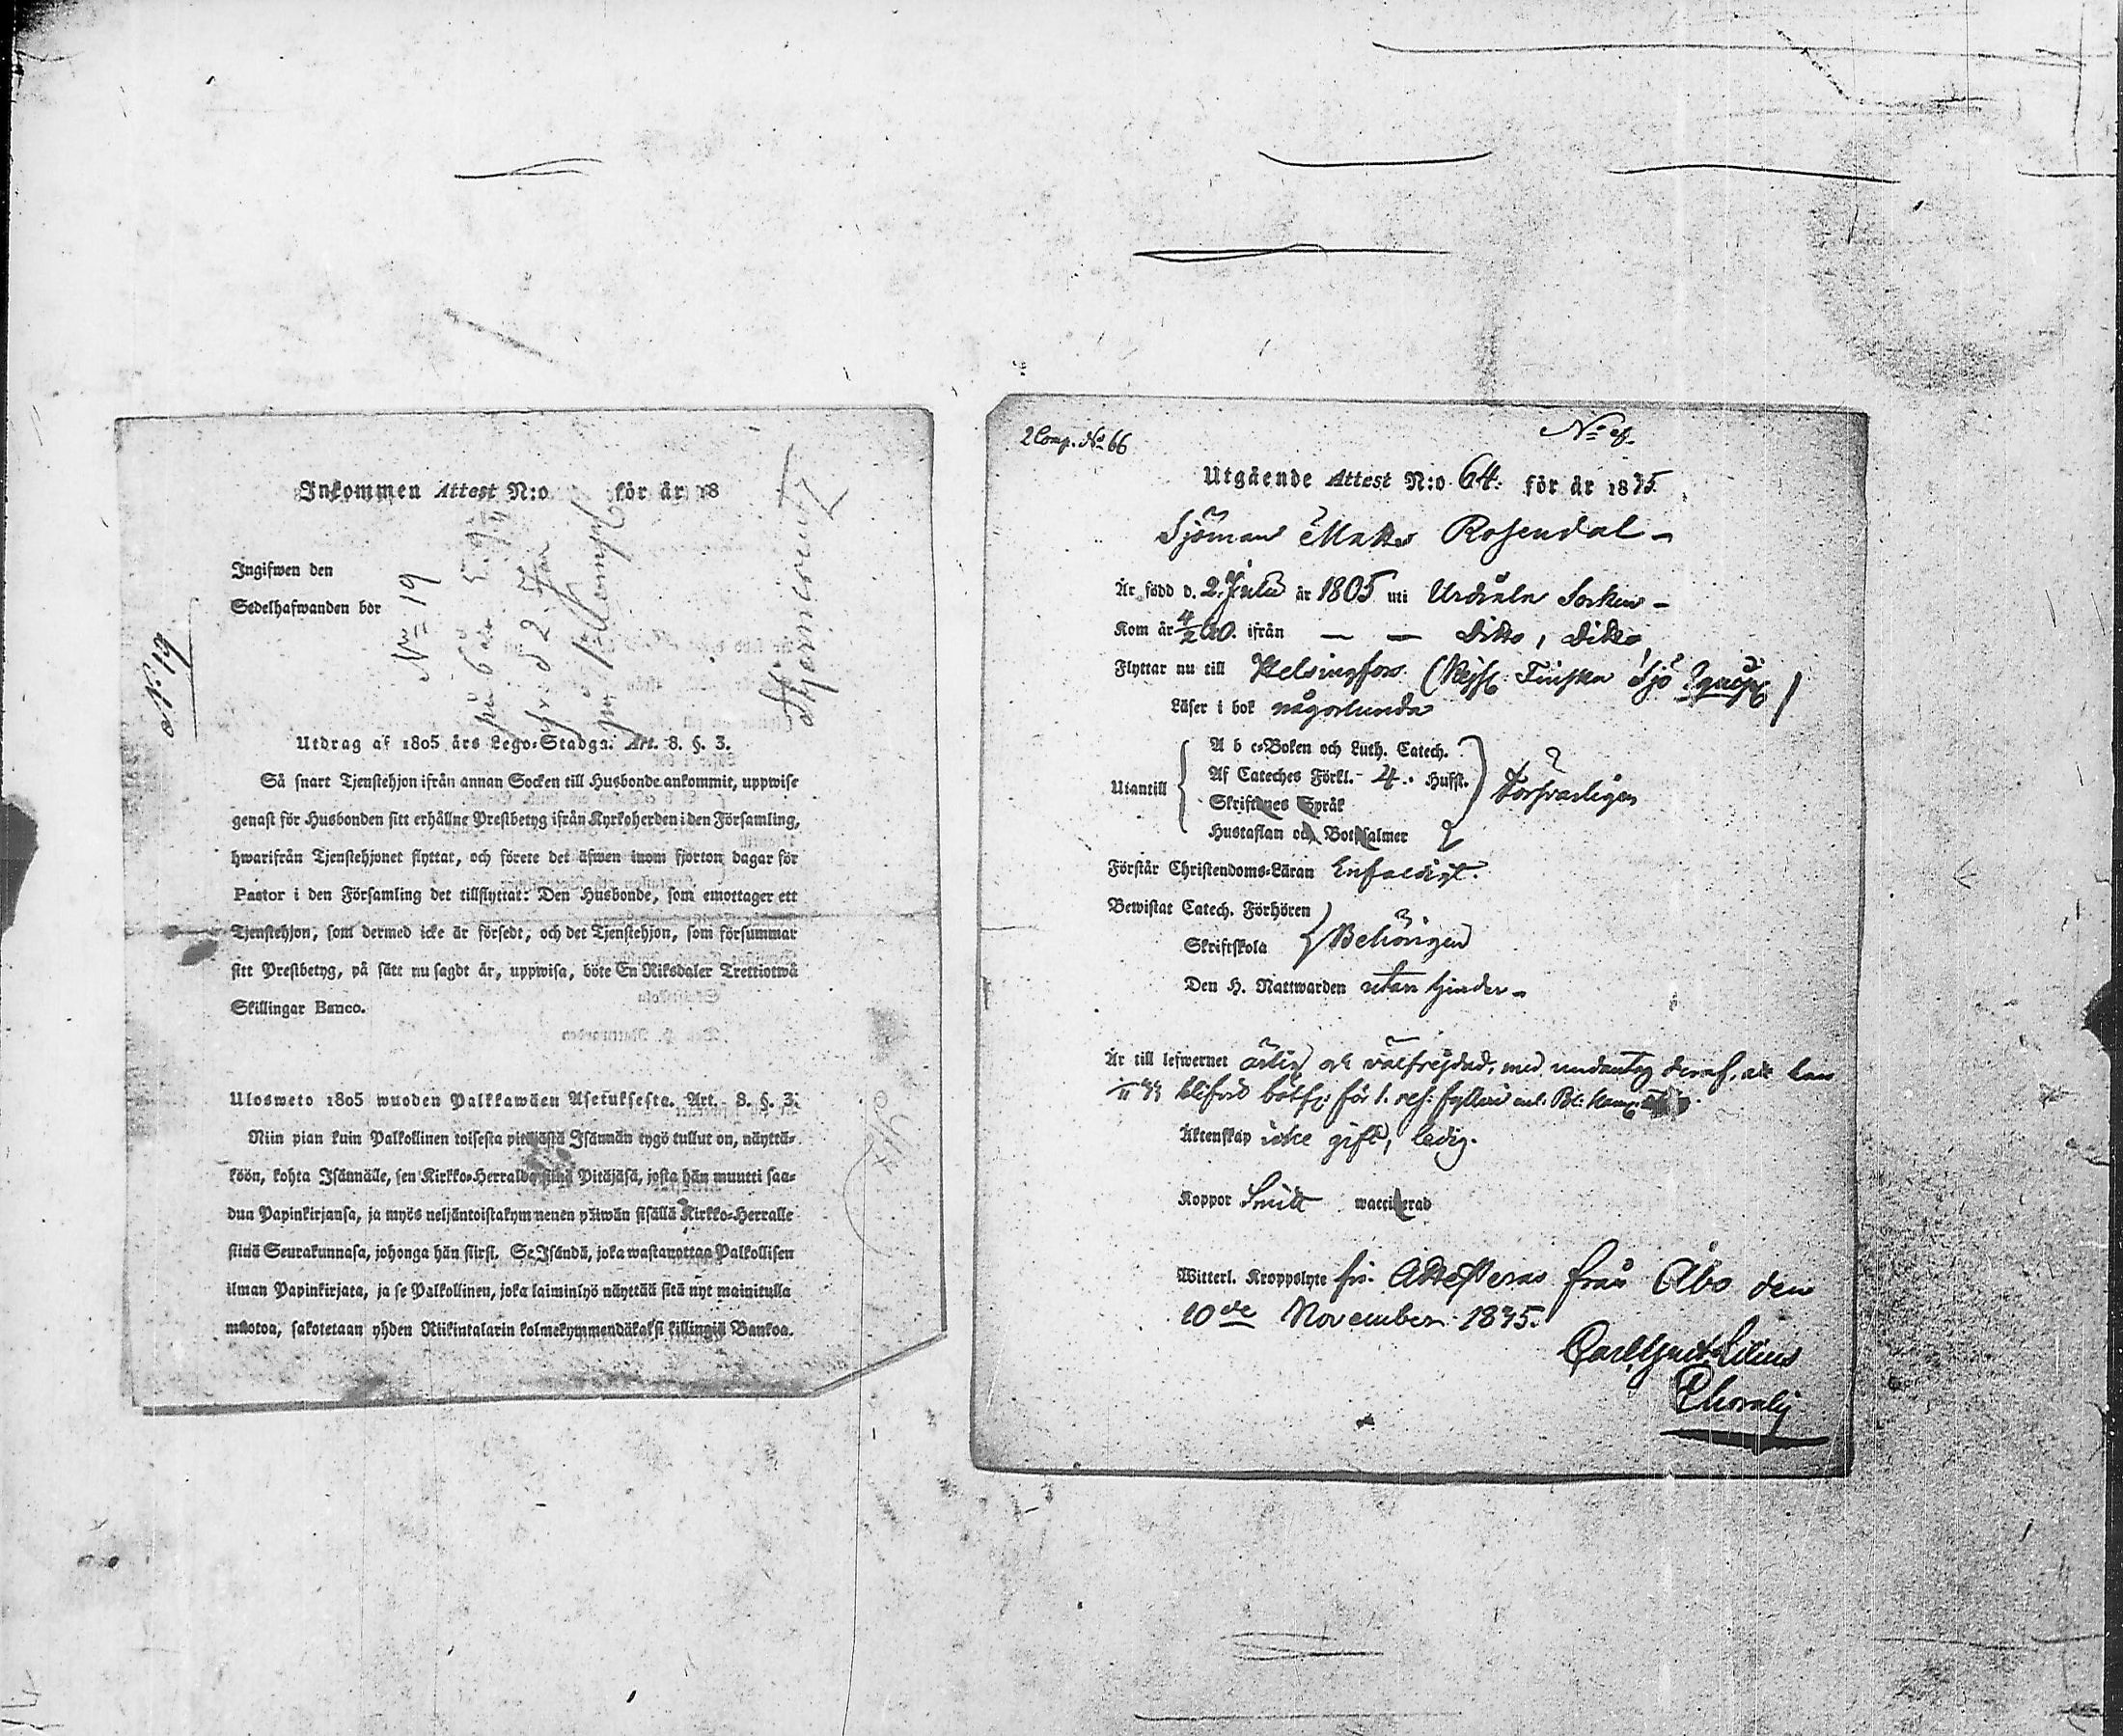 Inkommen Attest N:o för år 18
Ingifwen den
Sedelhafwanden bor
No 19
Utdrag af 1805 års Lego-Stadga. Art. 8. §. 3.
Så snart Tjenstehjon ifrån annan Socken till Husbonde ankommit, uppwise
genast för Husbonden sitt erhållne Prestbetyg ifrån Kyrkoherden i den Församling,
hwarifrån Tjenstehjonet flyttat, och förete det äfwen inom fjorton dagar för
Pastor i den Församling det tillflyttat: Den Husbonde, som emottager ett
Tjenstehjon, som dermed icke är försedt, och det Tjenstehjon, som försummar
sitt Prestbetyg, på sätt nu sagdt är, uppwisa, böte En Riksdaler Trettiotwå
Skillingar Banco.
Ulosweto 1805 wuoden Palkkawäen Asetuksesta. Art. 8. §. 3.
Niin pian kuin Palkollinen toisesta pitäjästä Isännän tygö tullut on, näyttä-
köön, kohta Isännälle, sen Kirkko-Herralda siinä Pitäjäsä, josta hän muutti saa-
dun Papinkirjansa, ja myös neljäntoistakymmenen päiwän sisällä Kirkko-Herralle
siinä Seurakunnasa, johonga hän siirsi. Se Isändä, joka wastanottaa Palkollisen
ilman Papinkirjata, ja se Palkollinen, joka laiminlyö näyttää sitä nyt mainitulla
muotoa, sakotetaan yhden Riikintalarin kolmekymmendäkaksi killingiä Bankoa.
2 Comp. No 66
Utgående Attest N:o 64. för år 1835.
Sjöman Matts Rosendal
Är född d. 2 Julii år 1805 uti Urdiala Socken
Kom år 20. ifrån — — Ditto, Ditto,
Flyttar nu till Helsingfors. (Kejs. Finska Sjö Equip.)
Läser i bok någorlunda
Utantill
A b c-Boken och Luth. Catech.
Af Cateches Förkl. 4. Hufst.
Skriftenes Språk
Hustaflan och Botpsalmer
Försvarligen
Förstår Christendoms-Läran Enfaldigt.
Bewistat Catech. Förhören
Skriftskola
Behörigen
Den H. Nattwarden utan hinder
Är till lefwernet ärlig och välfrejdad, med undantag deraf, att han
blifvit bötf. för 1. res. fylleri
Äktenskap icke gift, ledig.
Koppor Smitt waccinerad
Witterl. Kroppslyte fri. Attesteras från Åbo den
10de November 1835.